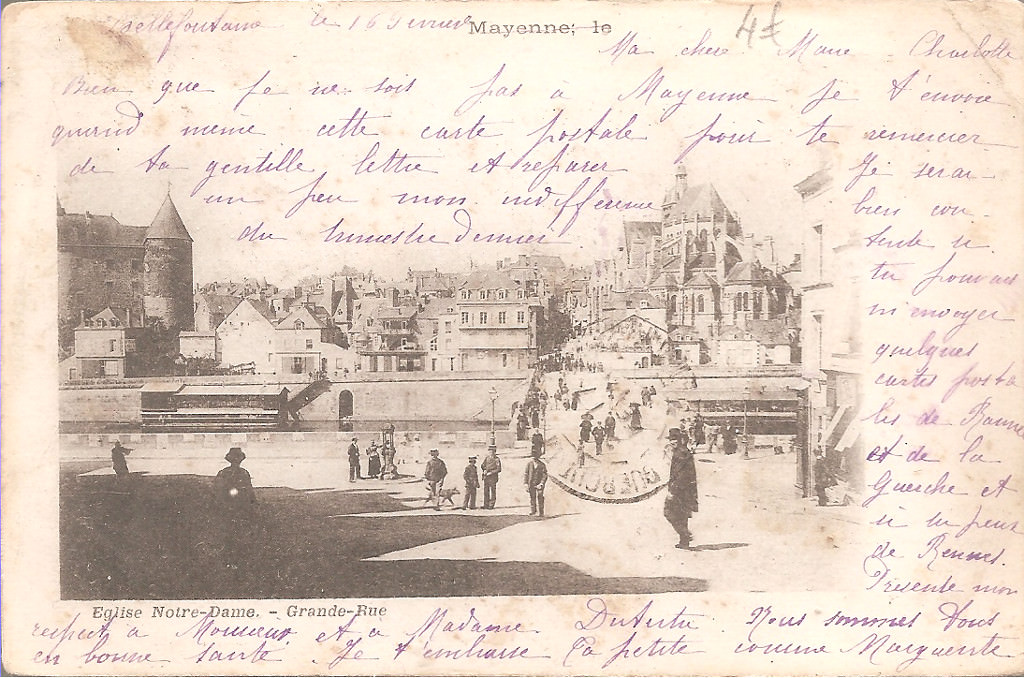 Bellefontaine le 16 Fevrier
Mayenne, le
4f
Ma chere Marie Charlotte
Bien que je ne sois pas à Mayenne je t'envoie
quand même cette carte postale pour te remercier
de ta gentille lettre et reparer
un peu mon indifférence
du trimestre dernier
Je serai
bien con-
tente si
tu pouvais
m'envoyer
quelques
cartes posta
les de Rannee
et de la
Guerche et
si tu peux
de Rennes.
Presente mon
Eglise Notre-Dame. - Grande-Rue
respect à Monsieur et a Madame Nous sommes tous
en bonne santé. Je t'embrasse Ta petite cousine Marguerite
GUERCHE